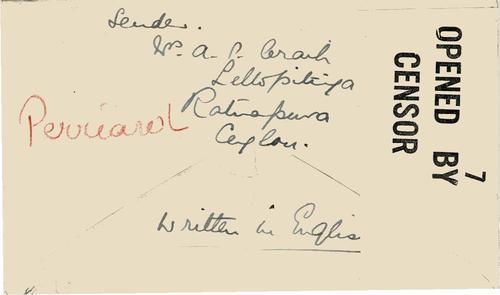 Sender.
Mrs. A. P. Craib
Lellopitiya
Ratnapura
Ceylon.
OPENED BY
CENSOR
7
Written in Englis